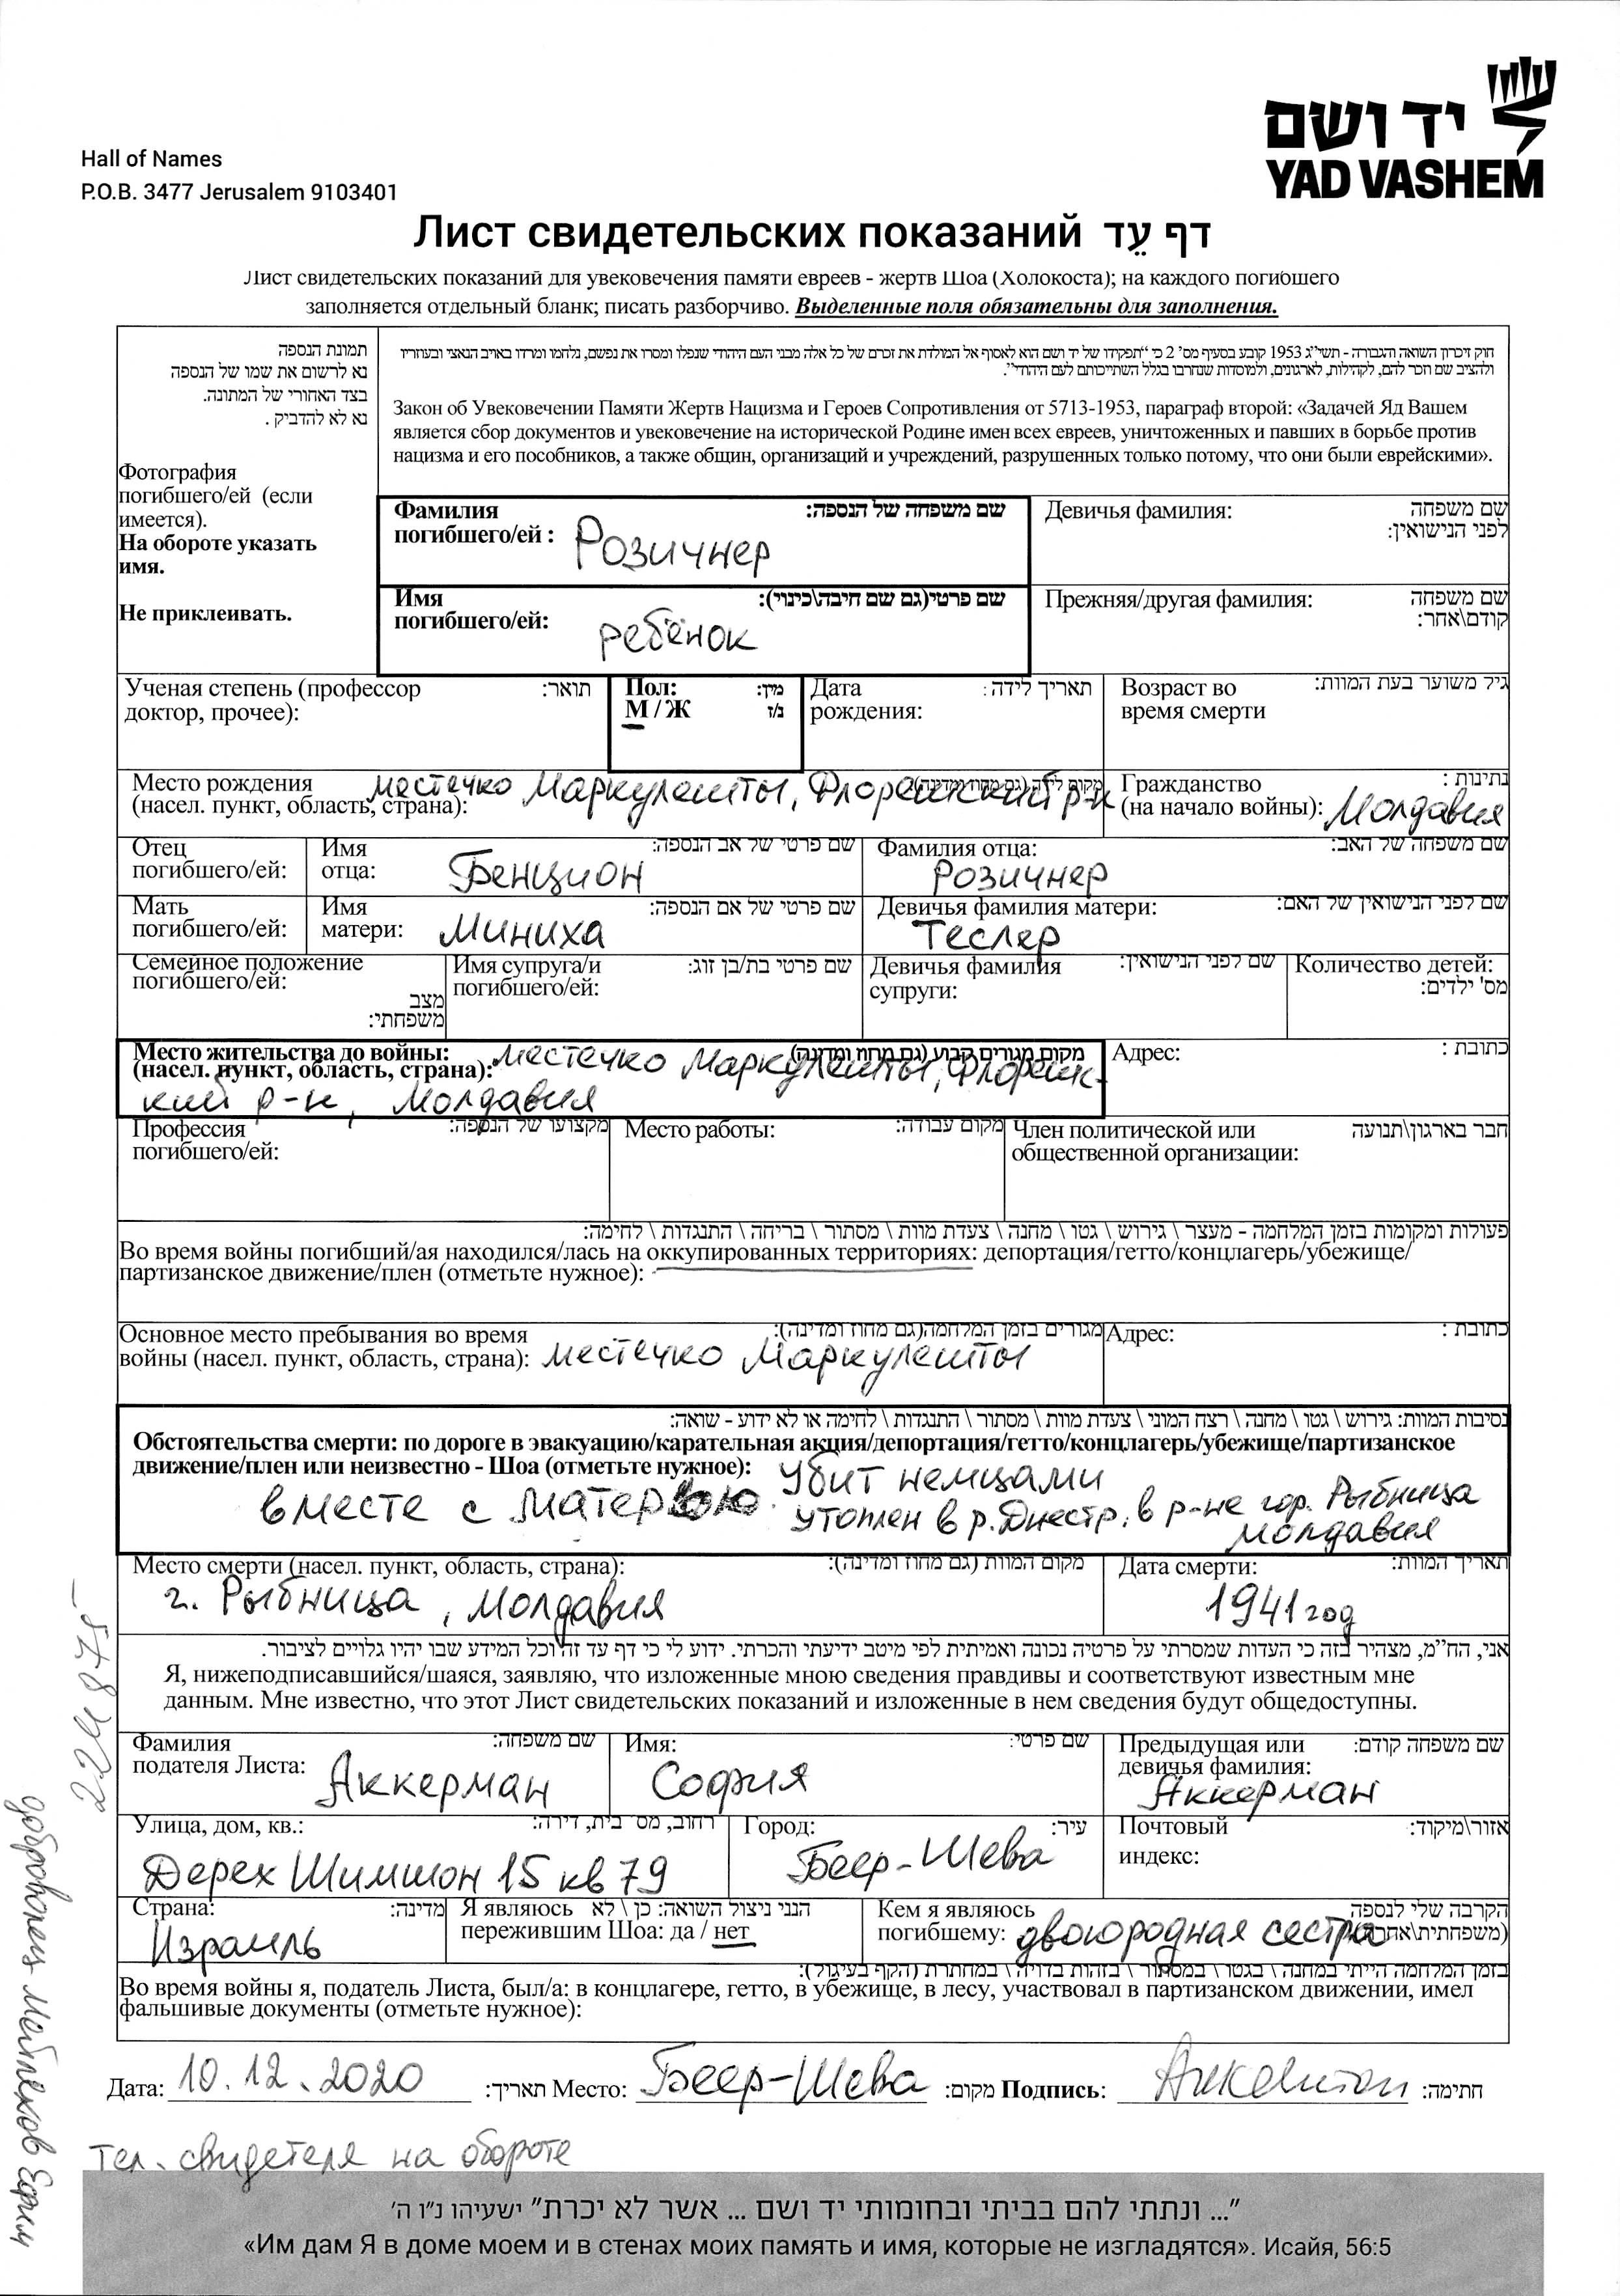 יד ושם
YAD VASHEM
Hall of Names
P.O.B. 3477 Jerusalem 9103401
Лист свидетельских показаний דף עֵד
Лист свидетельских показаний для увековечения памяти евреев - жертв Шоа (Холокоста); на каждого погибшего
заполняется отдельный бланк; писать разборчиво. Выделенные поля обязательны для заполнения.
תמונת הנספה
נא לרשום את שמו של הנספה
בצד האחורי של המתונה.
נא לא להדביק .
Фотография
погибшего/ей (если
имеется).
На обороте указать
имя.
Не приклеивать.
חוק זיכרון השואה והגבורה - תשי"ג 1953 קובע בסעיף מס' 2 כי "תפקידו של יד ושם הוא לאסוף אל המולדת את זכרם של כל אלה מבני העם היהודי שנפלו ומסרו את נפשם, נלחמו ומרדו באויב הנאצי ובעוזריו
ולהציב שם וזכר להם, לקהילות, לארגונים, ולמוסדות שנחרבו בגלל השתייכותם לעם היהודי".
Закон об Увековечении Памяти Жертв Нацизма и Героев Сопротивления от 5713-1953, параграф второй: «Задачей Яд Вашем
является сбор документов и увековечение на исторической Родине имен всех евреев, уничтоженных и павших в борьбе против
нацизма и его пособников, а также общин, организаций и учреждений, разрушенных только потому, что они были еврейскими».
Фамилия погибшего/ей : שם משפחה של הנספה: Розичнер
Девичья фамилия: שם משפחה לפני הנישואין:
Имя погибшего/ей: שם פרטי(גם שם חיבה\כינוי): ребёнок
Прежняя/другая фамилия: שם משפחה קודם\אחר:
Ученая степень (профессор доктор, прочее): תואר:
Пол: מין:
М / Ж ז/נ
Дата рождения: תאריך לידה:
Возраст во время смерти גיל משוער בעת המוות:
Место рождения (насел. пункт, область, страна): מקום לידה(גם מחוז ומדינה): местечко Маркулешты, Флорештский р-н
Гражданство (на начало войны): נתינות : Молдавия
Отец погибшего/ей: Имя отца: שם פרטי של אב הנספה: Бенцион
Фамилия отца: שם משפחה של האב: Розичнер
Мать погибшего/ей: Имя матери: שם פרטי של אם הנספה: Миниха
Девичья фамилия матери: שם לפני הנישואין של האם: Теслер
Семейное положение погибшего/ей: מצב משפחתי:
Имя супруга/и погибшего/ей: שם פרטי בת/בן זוג:
Девичья фамилия супруги: שם לפני הנישואין:
Количество детей: מס' ילדים:
Место жительства до войны: מקום מגורים קבוע (גם מחוז ומדינה)
(насел. пункт, область, страна): местечко Маркулешты, Флорешт-
кий р-н, Молдавия
Адрес: כתובת :
Профессия погибшего/ей: מקצועו של הנספה:
Место работы: מקום עבודה:
Член политической или общественной организации: חבר בארגון\תנועה
פעולות ומקומות בזמן המלחמה - מעצר \ גירוש \ גטו \ מחנה \ צעדת מוות \ מסתור \ בריחה \ התנגדות \ לחימה:
Во время войны погибший/ая находился/лась на оккупированных территориях: депортация/гетто/концлагерь/убежище/
партизанское движение/плен (отметьте нужное):
Основное место пребывания во время מגורים בזמן המלחמה(גם מחוז ומדינה):
войны (насел. пункт, область, страна): местечко Маркулешты
Адрес: כתובת :
נסיבות המוות: גירוש \ גטו \ מחנה \ רצח המוני \ צעדת מוות \ מסתור \ התנגדות \ לחימה או לא ידוע - שואה:
Обстоятельства смерти: по дороге в эвакуацию/карательная акция/депортация/гетто/концлагерь/убежище/партизанское
движение/плен или неизвестно - Шоа (отметьте нужное): Убит немцами
вместе с матерью. утоплен в р. Днестр, в р-не гор. Рыбница
Молдавия
Место смерти (насел. пункт, область, страна): מקום המוות (גם מחוז ומדינה):
г. Рыбница, Молдавия
Дата смерти: תאריך המוות:
1941 год
אני, הח"מ, מצהיר בזה כי העדות שמסרתי על פרטיה נכונה ואמיתית לפי מיטב ידיעתי והכרתי. ידוע לי כי דף עד זה וכל המידע שבו יהיו גלויים לציבור.
Я, нижеподписавшийся/шаяся, заявляю, что изложенные мною сведения правдивы и соответствуют известным мне
данным. Мне известно, что этот Лист свидетельских показаний и изложенные в нем сведения будут общедоступны.
Фамилия податели Листа: שם משפחה: Аккерман
Имя: שם פרטי: София
Предыдущая или девичья фамилия: שם משפחה קודם: Аккерман
Улица, дом, кв.: רחוב, מס' בית, דירה: Дерех Шимшон 15 кв 79
Город: עיר: Беер-Шева
Почтовый индекс: אזור\מיקוד:
Страна: מדינה: Израиль
Я являюсь הנני ניצול השואה: כן \ לא
пережившим Шоа: да / нет
Кем я являюсь погибшему: הקרבה שלי לנספה (משפחתית\אחרת): двоюродная сестра
בזמן המלחמה הייתי במחנה \ בגטו \ במסתור \ בזהות בדויה \ במחתרת (הקף בעיגול):
Во время войны я, податель Листа, был/а: в концлагере, гетто, в убежище, в лесу, участвовал в партизанском движении, имел
фальшивые документы (отметьте нужное):
Дата: 10.12.2020 תאריך: Место: Беер-Шева מקום: Подпись: חתימה:
Тел. свидетеля на обороте
доброволец Ефим
"... ונתתי להם בביתי ובחומותי יד ושם ... אשר לא יכרת" ישעיהו נ"ו ה'
«Им дам Я в доме моем и в стенах моих память и имя, которые не изгладятся». Исайя, 56:5